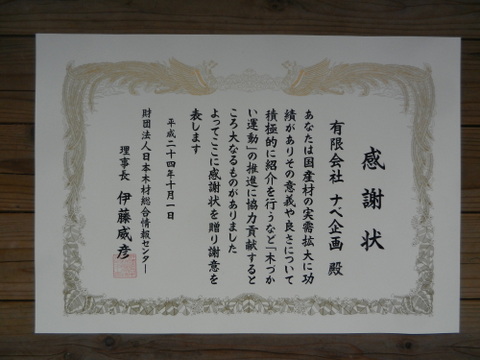 感謝状
有限会社 ナベ企画 殿
あなたは国産材の実需拡大に功
績がありその意義や良さについて
積極的に紹介を行うなど「木づか
い運動」の推進に協力貢献すると
ころ大なるものがありました
よってここに感謝状を贈り謝意を
表します
平成二十四年十月一日
財団法人日本木材総合情報センター
理事長 伊藤威彦